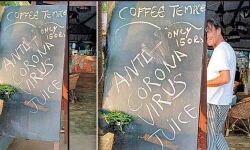 COFFEE TEMPLE
ONLY
150Rs
ANTI
CORONA
VIRUS
JUICE
COFFEE TEMPLE
ONLY
150Rs
ANTI
CORONA
VIRUS
JUICE